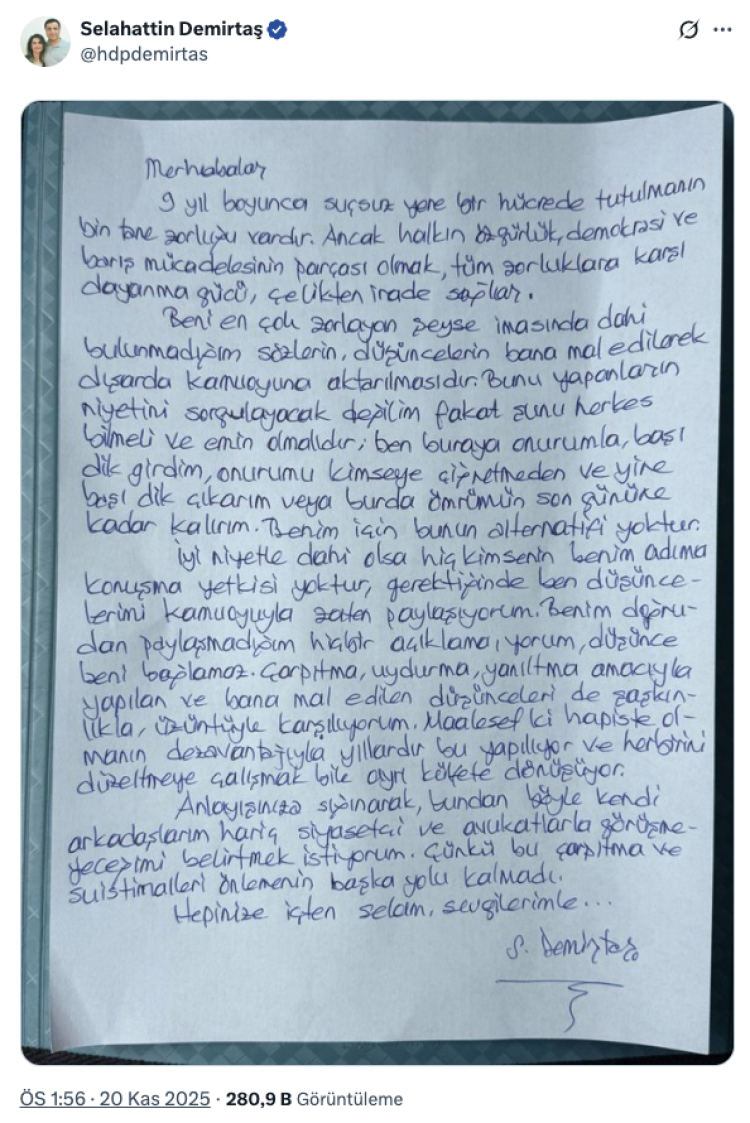 Selahattin Demirtaş
@hdpdemirtas
Merhabalar
9 yıl boyunca suçsuz yere bir hücrede tutulmanın
bin tane zorluğu vardır. Ancak halkın özgürlük, demokrasi ve
barış mücadelesinin parçası olmak, tüm zorluklara karşı
dayanma gücü, çelikten irade sağlar.
Beni en çok zorlayan şeyse imasında dahi
bulunmadığım sözlerin, düşüncelerin bana mal edilerek
dışarda kamuoyuna aktarılmasıdır. Bunu yapanların
niyetini sorgulayacak değilim fakat şunu herkes
bilmeli ve emin olmalıdır; ben buraya onurumla, başı
dik girdim, onurumu kimseye çiğnetmeden ve yine
başı dik çıkarım veya burda ömrümün son gününe
kadar kalırım. Benim için bunun alternatifi yoktur.
İyi niyetle dahi olsa hiç kimsenin benim adıma
konuşma yetkisi yoktur, gerektiğinde ben düşünce-
lerimi kamuoyuyla zaten paylaşıyorum. Benim doğru-
dan paylaşmadığım hiçbir açıklama, yorum, düşünce
beni bağlamaz. Çarpıtma, uydurma, yanıltma amacıyla
yapılan ve bana mal edilen düşünceleri de şaşkın-
lıkla, üzüntüyle karşılıyorum. Maalesef ki hapiste ol-
manın dezavantajıyla yıllardır bu yapılıyor ve herbirini
düzeltmeye çalışmak bile ayrı külfete dönüşüyor.
Anlayışınıza sığınarak, bundan böyle kendi
arkadaşlarım hariç siyasetçi ve avukatlarla görüşme-
yeceğimi belirtmek istiyorum. Çünkü bu çarpıtma ve
suistimalleri önlemenin başka yolu kalmadı.
Hepinize içten selam, sevgilerimle...
S. Demirtaş
ÖS 1:56 · 20 Kas 2025 · 280,9 B Görüntüleme